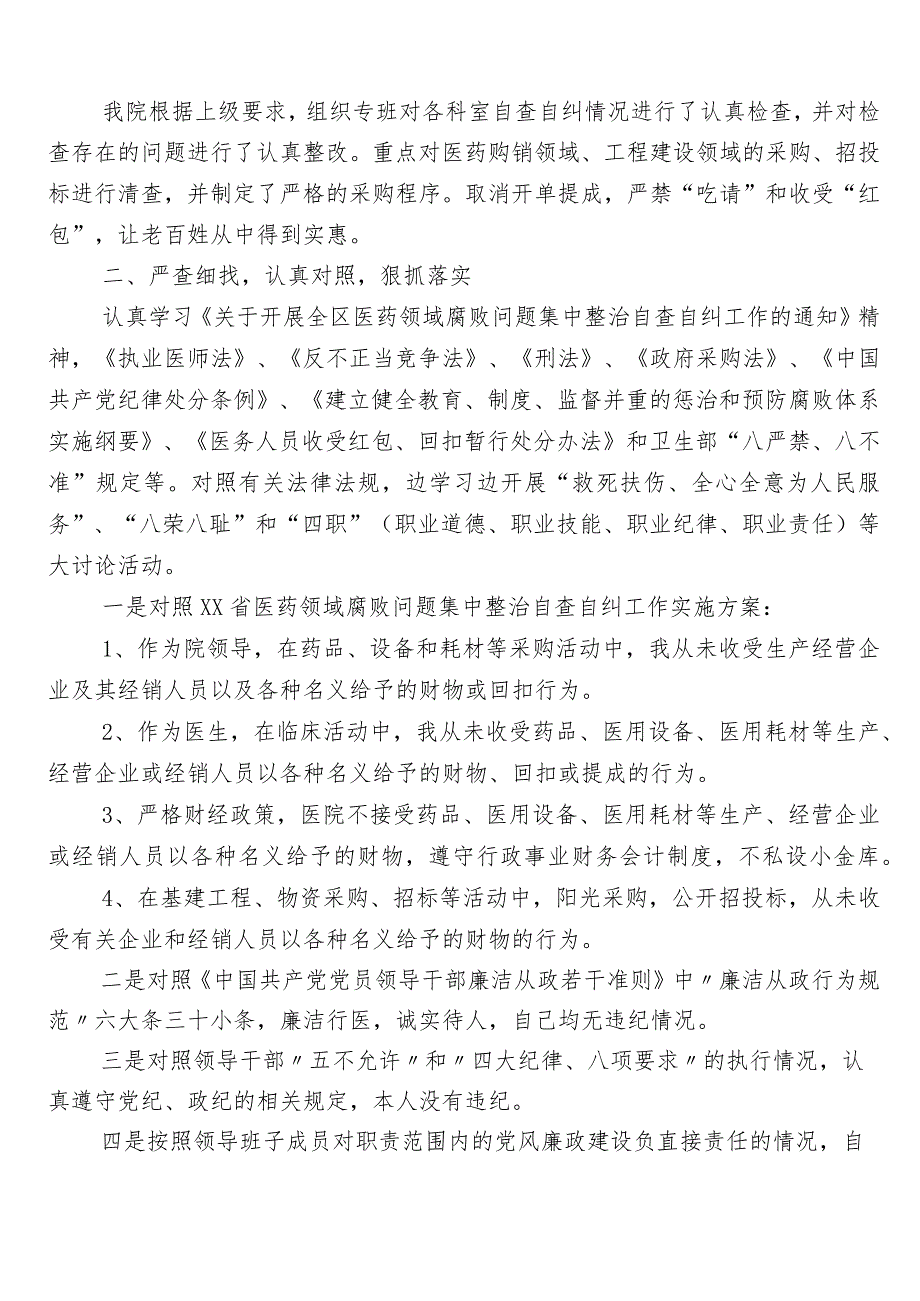 我院根据上级要求，组织专班对各科室自查自纠情况进行了认真检查，并对检
查存在的问题进行了认真整改。重点对医药购销领域、工程建设领域的采购、招投
标进行清查，并制定了严格的采购程序。取消开单提成，严禁“吃请”和收受“红
包”，让老百姓从中得到实惠。
二、严查细找，认真对照，狠抓落实
认真学习《关于开展全区医药领域腐败问题集中整治自查自纠工作的通知》精
神，《执业医师法》、《反不正当竞争法》、《刑法》、《政府采购法》、《中国
共产党纪律处分条例》、《建立健全教育、制度、监督并重的惩治和预防腐败体系
实施纲要》、《医务人员收受红包、回扣暂行处分办法》和卫生部“八严禁、八不
准”规定等。对照有关法律法规，边学习边开展“救死扶伤、全心全意为人民服
务”、“八荣八耻”和“四职”（职业道德、职业技能、职业纪律、职业责任）等
大讨论活动。
一是对照XX省医药领域腐败问题集中整治自查自纠工作实施方案：
1、作为院领导，在药品、设备和耗材等采购活动中，我从未收受生产经营企
业及其经销人员以及各种名义给予的财物或回扣行为。
2、作为医生，在临床活动中，我从未收受药品、医用设备、医用耗材等生产、
经营企业或经销人员以各种名义给予的财物、回扣或提成的行为。
3、严格财经政策，医院不接受药品、医用设备、医用耗材等生产、经营企业
或经销人员以各种名义给予的财物，遵守行政事业财务会计制度，不私设小金库。
4、在基建工程、物资采购、招标等活动中，阳光采购，公开招投标，从未收
受有关企业和经销人员以各种名义给予的财物的行为。
二是对照《中国共产党党员领导干部廉洁从政若干准则》中〃廉洁从政行为规
范〃六大条三十小条，廉洁行医，诚实待人，自己均无违纪情况。
三是对照领导干部〃五不允许〃和〃四大纪律、八项要求〃的执行情况，认
真遵守党纪、政纪的相关规定，本人没有违纪。
四是按照领导班子成员对职责范围内的党风廉政建设负直接责任的情况，自